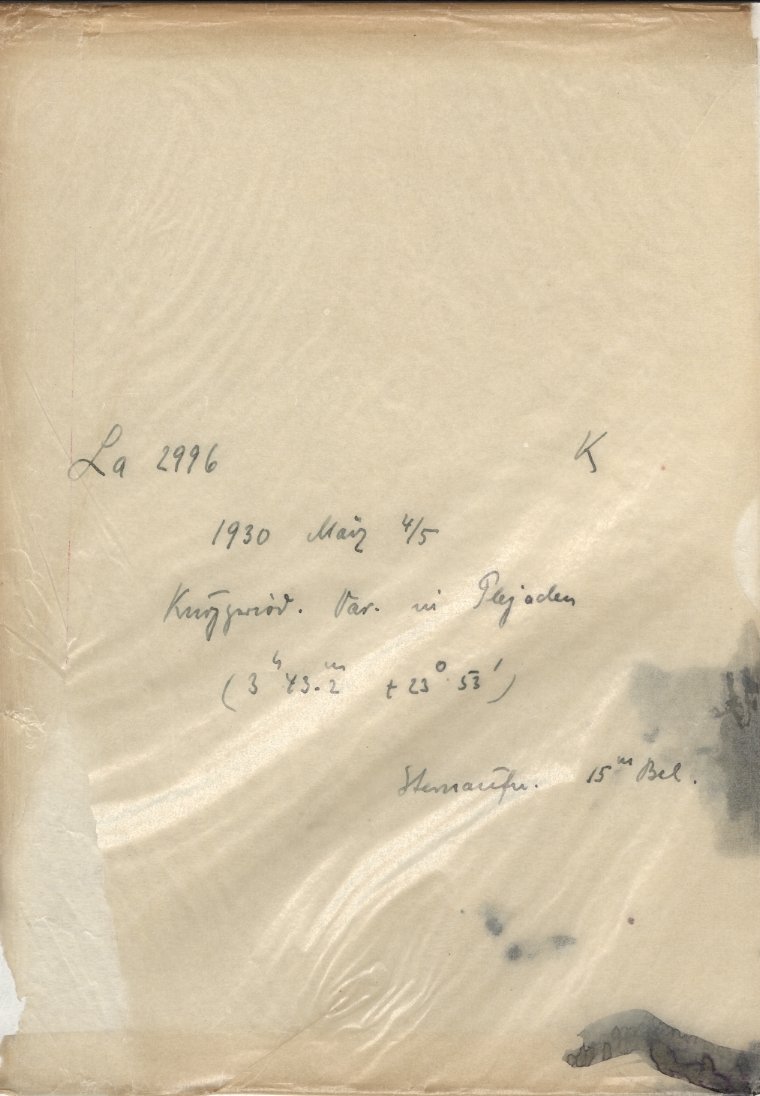 La 2996 K
1930 März 4/5
Kurzperiod. Var. in Plejaden
(3ʰ 43.2ᵐ + 23° 53')
Sternaufn. 15ᵐ Bel.